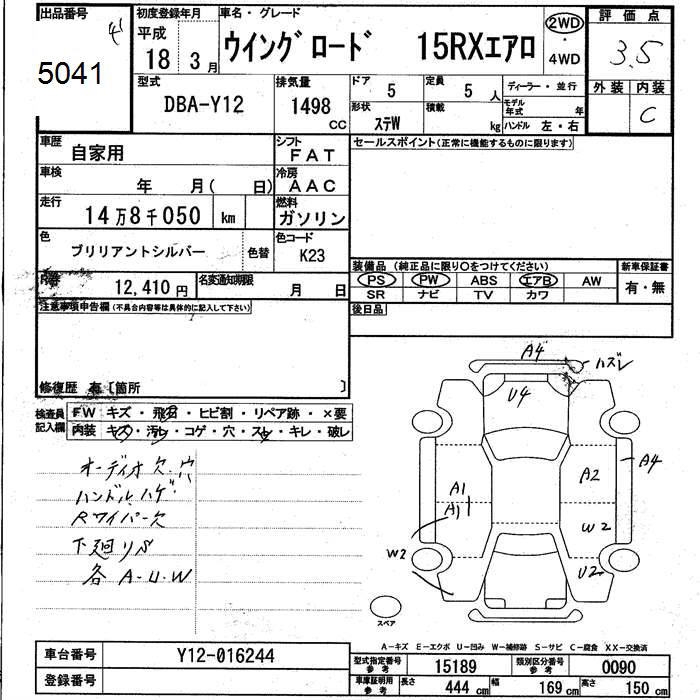 出品番号
5041
初度登録年月
平成
18 3 月
車名・グレード
ウイングロード 15RXエアロ
2WD
・
4WD
評価点
3.5
外装 内装
C
型式
DBA-Y12
排気量
1498
CC
ドア
5
定員
5 人
形状
ステW
積載
kg
ディーラー・並行
モデル
年式 年
ハンドル 左・右
車歴
自家用
シフト
FAT
車検
年 月( 日)
冷房
AAC
走行
14万8千050 km
燃料
ガソリン
色
ブリリアントシルバー
色替
色コード
K23
12,410 円
名変通知期限
月 日
セールスポイント(正常に機能するものに限ります)
装備品(純正品に限り○をつけてください)
PS PW ABS エアB AW
SR ナビ TV カワ
新車保証書
有・無
後日品
注意事項申告欄(不具合内容等は具体的に記入して下さい)
修復歴 有〔箇所 〕
検査員
記入欄
FW キズ・飛石・ヒビ割・リペア跡・×要
内装 キズ・汚レ・コゲ・穴・スレ・キレ・破レ
オーディオ欠.穴
ハンドル.ハゲ
Rワイパー欠
下廻りS
各 A-U.W
A4
ハズレ
U4
A4
A2
A1
A1
W2
W2
U2
スペア
A-キズ E-エクボ U-凹み W-補修跡 S-サビ C-腐食 XX-交換済
車台番号
Y12-016244
登録番号
型式指定番号
参考
15189
類別区分番号
参考
0090
車庫証明用
参考
長さ 444 cm 幅 169 cm 高さ 150 cm